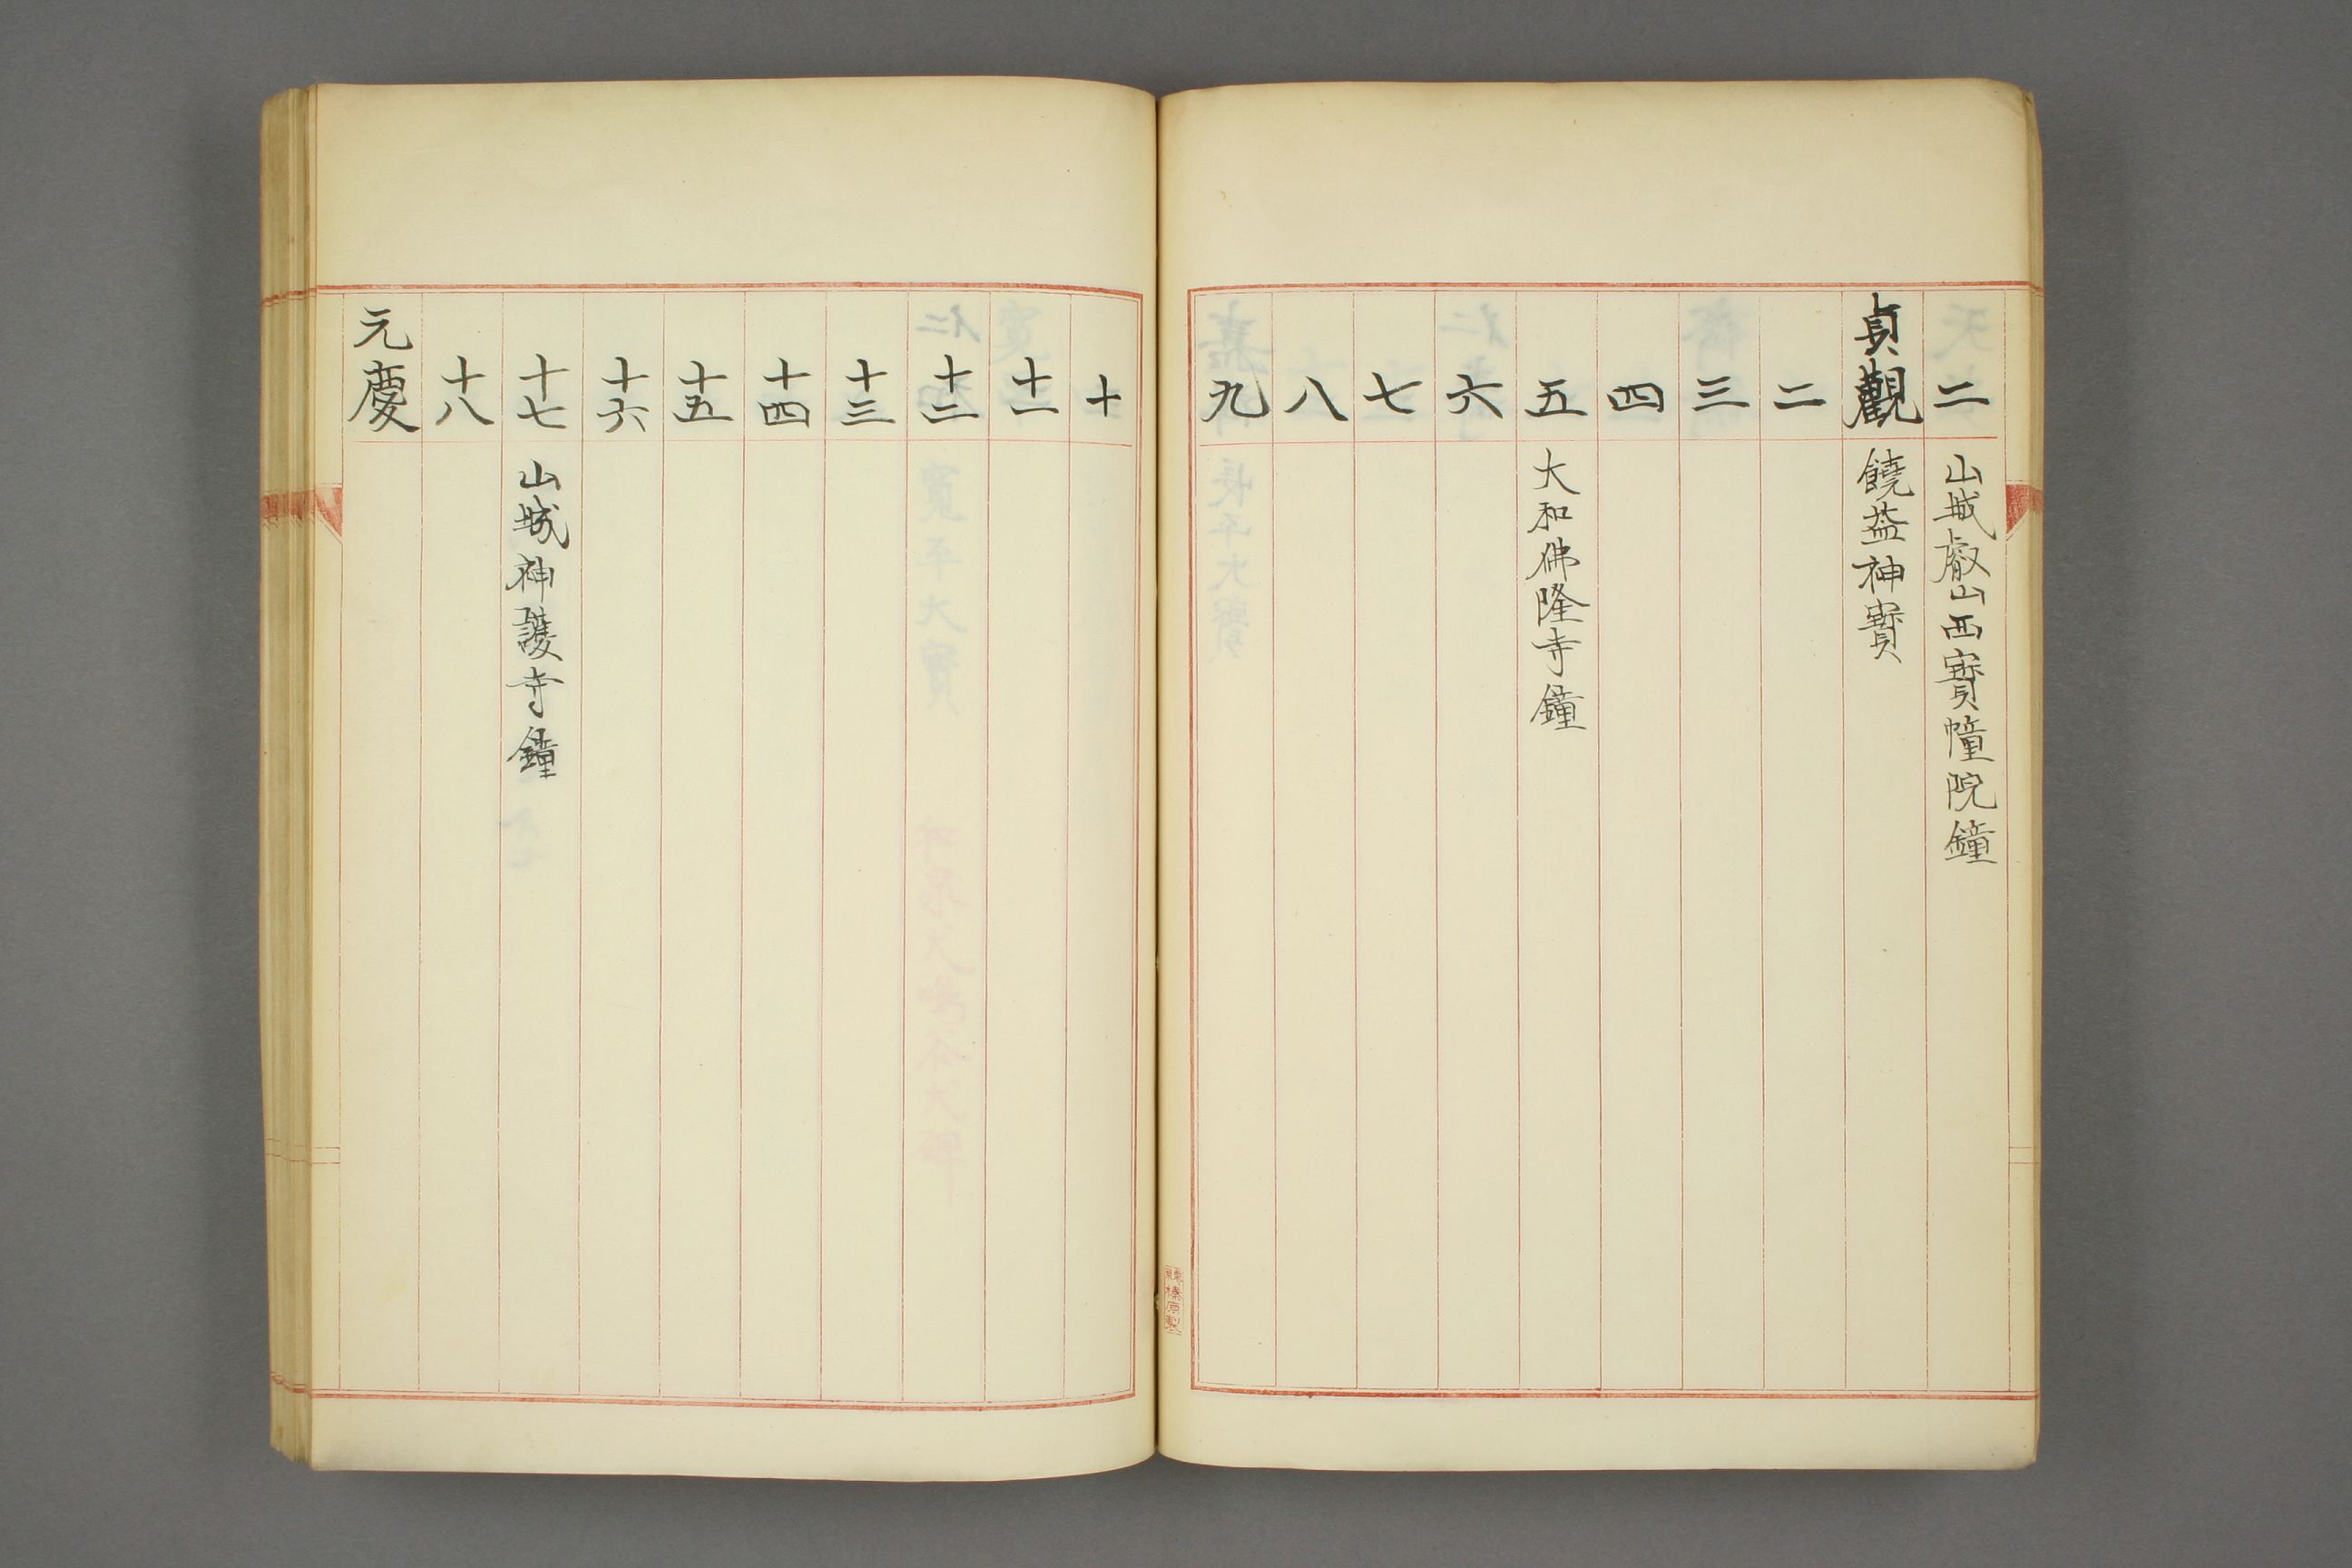 二 山城叡山西寳幢院鐘
貞觀 饒益神寳
二
三
四
五 大和佛隆寺鐘
六
七
八
九
十
十一
十二
十三
十四
十五
十六
十七 山城神護寺鐘
十八
元慶
榛原製